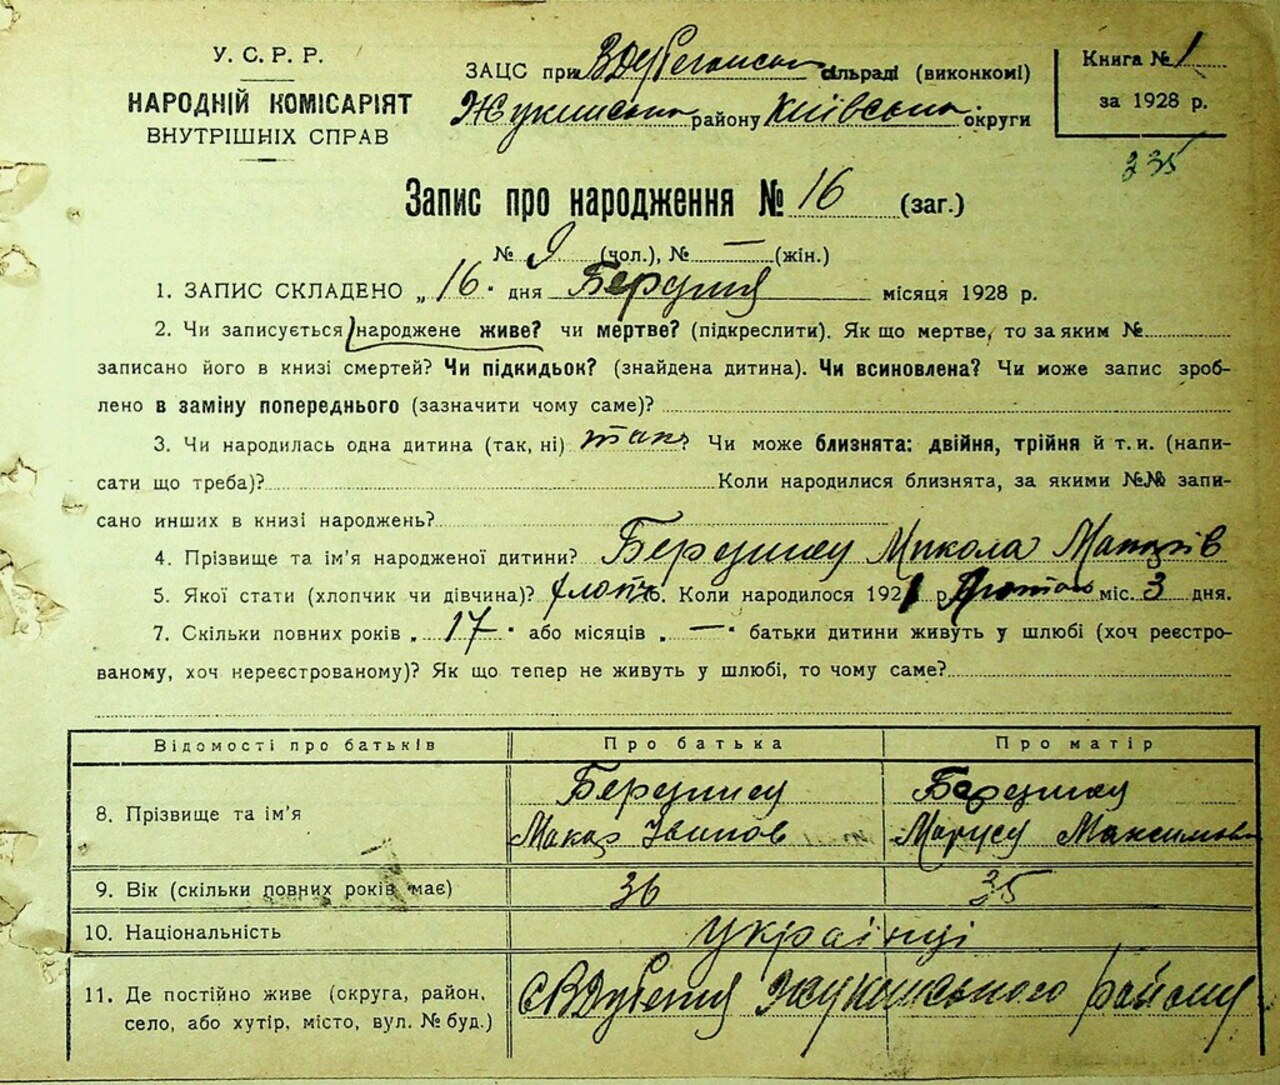 У. С. Р. Р.
НАРОДНІЙ КОМІСАРІЯТ
ВНУТРІШНІХ СПРАВ
ЗАЦС при сільраді (виконкомі)
району Київської округи
Книга № 1
за 1928 р.
235
Запис про народження № 16 (заг.)
№ 9 (чол.), № — (жін.)
1. ЗАПИС СКЛАДЕНО „ 16 " дня місяця 1928 р.
2. Чи записується народжене живе? чи мертве? (підкреслити). Як що мертве, то за яким №
записано його в книзі смертей? Чи підкидьок? (знайдена дитина). Чи всиновлена? Чи може запис зроб-
лено в заміну попереднього (зазначити чому саме)?
3. Чи народилась одна дитина (так, ні) так? Чи може близнята: двійня, трійня й т. и. (напи-
сати що треба)? Коли народилися близнята, за якими №№ запи-
сано инших в книзі народжень?
4. Прізвище та ім'я народженої дитини? Микола
5. Якої стати (хлопчик чи дівчина)? 6. Коли народилося 1921 р. міс. 3 дня.
7. Скільки повних років „ 17 " або місяців „ — " батьки дитини живуть у шлюбі (хоч реєстро-
ваному, хоч нереєстрованому)? Як що тепер не живуть у шлюбі, то чому саме?
Відомості про батьків Про батька Про матір
8. Прізвище та ім'я
Макар Іванов Марусу Максимовна
9. Вік (скільки повних років має) 36 35
10. Національність українці
11. Де постійно живе (округа, район,
село, або хутір, місто, вул. № буд.) району